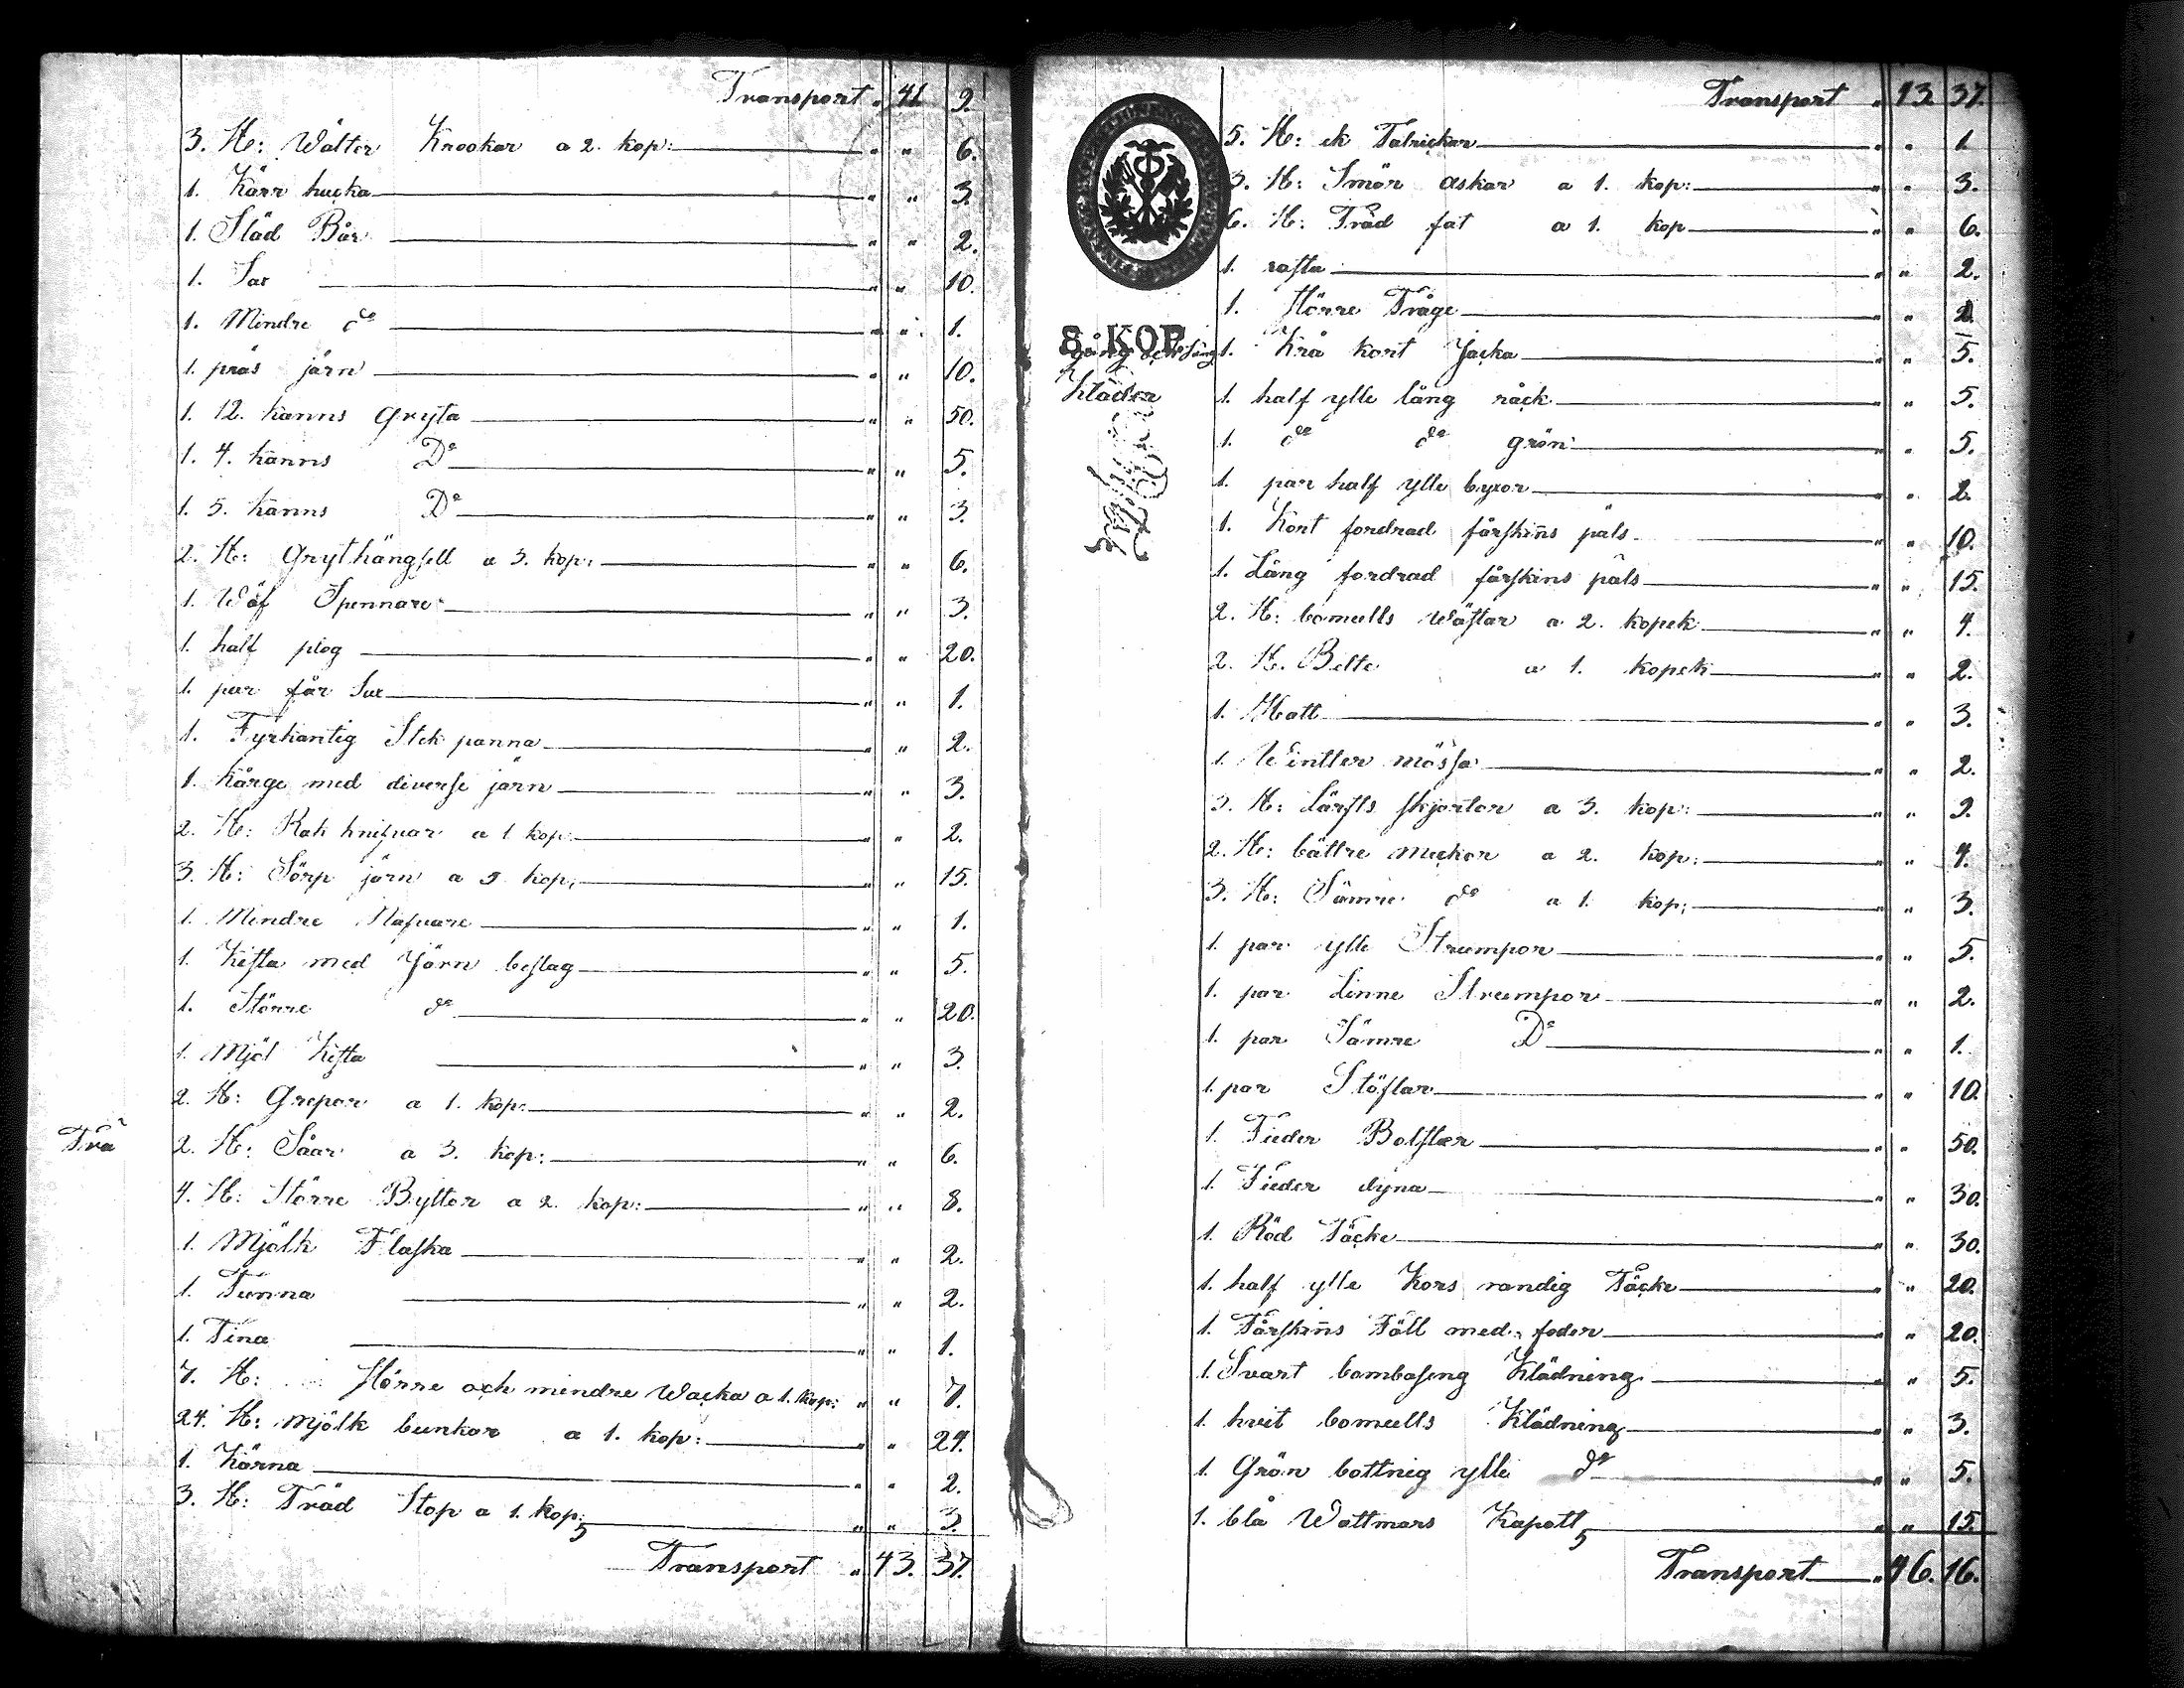 Transport „ 41. 9.
3. St: Wälter Krookar a 2. kop: „ „ 6.
1. Kärr hucka „ „ 3.
1. Städ Bår „ „ 2.
1. Sax „ „ 10.
1. Mindre do „ „ 1.
1. präs järn „ „ 10.
1. 12. kanns Gryta „ „ 50.
1. 4. kanns Do „ „ 5.
1. 5. kanns Do „ „ 3.
2. St: Grythängsell a 3. kop: „ „ 6.
1. Wäf Spennare „ „ 3.
1. half plog „ „ 20.
1. par får Sax „ „ 1.
1. Fyrkantig Stek panna „ „ 2.
1. kårge med diverse järn „ „ 3.
2. St: Rak knifvar a 1 kop: „ „ 2.
3. St: Sörp järn a 5 kop: „ „ 15.
1. Mindre Nafvare „ „ 1.
1. Kista med Järn beslag „ „ 5.
1. Större do „ „ 20.
1. Mjöl Kista „ „ 3.
2. St: Grepar a 1. kop: „ „ 2.
Trä
2. St: Såar a 3. kop: „ „ 6.
4. St: Större Byttor a 2. kop: „ „ 8.
1. Mjölk Flaska „ „ 2.
1. Tunna „ „ 2.
1. Tina „ „ 1.
7. St: Större och mindre Wacka a 1. kop: „ „ 7.
24. St: Mjölk bunkar a 1. kop: „ „ 24.
1. Kärna „ „ 2.
3. St: Träd Stop a 1. kop: „ „ 3.
Transport „ 43. 37.
Transport „ 43. 37.
5. St: ek Talrickar „ „ 1.
3. St: Smör askar a 1. kop: „ „ 3.
6. St: Träd fat a 1. kop „ „ 6.
1. rasta „ „ 2.
1. Större Tråge „ „
8. KOP.
gång och Säng
kläder
1. Krå kort Jacka „ „ 5.
1. half ylle lång råck „ „ 5.
1. do do grön „ „ 5.
1. par half ylle byxor „ „ 2.
1. Kort fordrad fårskins päls „ „ 10.
1. Lång fordrad fårskins päls „ „ 15.
2. St: bomulls Wästar a 2. kopek „ „ 4.
2. St. Bälte a 1. kopek „ „ 2.
1. Hatt „ „ 3.
1. Wintter mössa „ „ 2.
3. St: Lärfts skjortor a 3. kop: „ „ 9.
2. St: bättre Muckor a 2. kop: „ „ 4.
3. St: Sämre do a 1. kop: „ „ 3.
1. par ylle Strumpor „ „ 5.
1. par Linne Strumpor „ „ 2.
1. par Sämre Do „ „ 1.
1. par Stöflar „ „ 10.
1. Fieder Bolster „ „ 50.
1. Fieder dyna „ „ 30.
1. Röd Täcke „ „ 30.
1. half ylle Kors randig Täcke „ „ 20.
1. Fårskins Fäll med foder „ „ 20.
1. Svart bombaseng Klädning „ „ 5.
1. hvit bomulls Klädning „ „ 3.
1. Grön bottnig ylle do „ „ 5.
1. blå Wattmars Kapott „ „ 15.
Transport „ 46. 16.